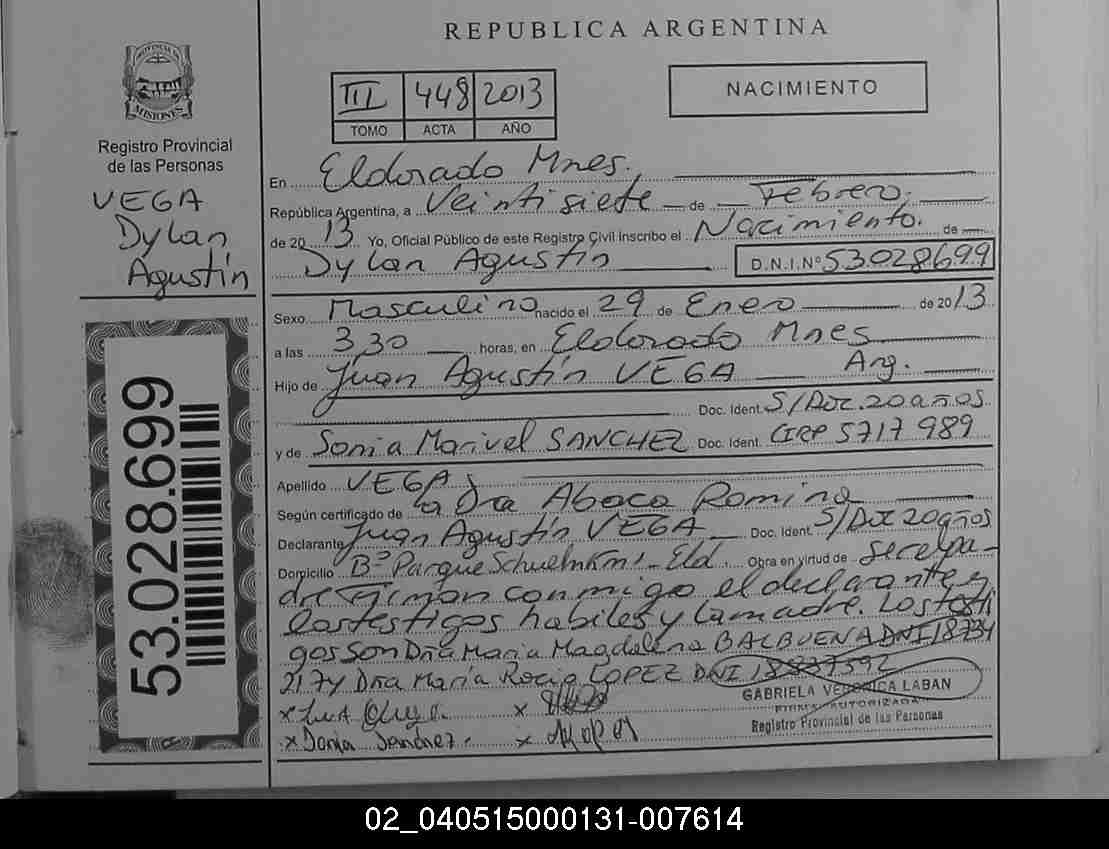 REPUBLICA ARGENTINA
PROVINCIA DE MISIONES
Registro Provincial
de las Personas
VEGA
Dylan
Agustín
53.028.699
III 448 2013
TOMO ACTA AÑO
NACIMIENTO
En Eldorado Mnes.
República Argentina, a Veintisiete de Febrero.
de 20 13 Yo, Oficial Público de este Registro Civil inscribo el Nacimiento. de
Dylan Agustín D.N.I.Nº 53028699
Sexo Masculino nacido el 29 de Enero de 20 13
a las 3 30 horas, en Eldorado Mnes
Hijo de Juan Agustín VEGA Arg.
Doc. Ident. S/Doc. 20 años.
y de Sonia Marivel SANCHEZ Doc. Ident. CIRP 5717 989
Apellido VEGA
Según certificado de la Dra Abaca Romina
Declarante Juan Agustín VEGA Doc. Ident. S/Doc 20 años
Domicilio Bº Parque Km 1 - Eld. Obra en virtud de ser el pa-
dre Firman conmigo el declarante y
los testigos habiles y la madre. Los testi
gos son Dña Maria Magdalena BALBUENA DNI 18734
217 y Dña María Rocio LOPEZ DNI
x
x Sonia Sanchez. x
GABRIELA VERONICA LABAN
FIRMA AUTORIZADA
Registro Provincial de las Personas
02_040515000131-007614